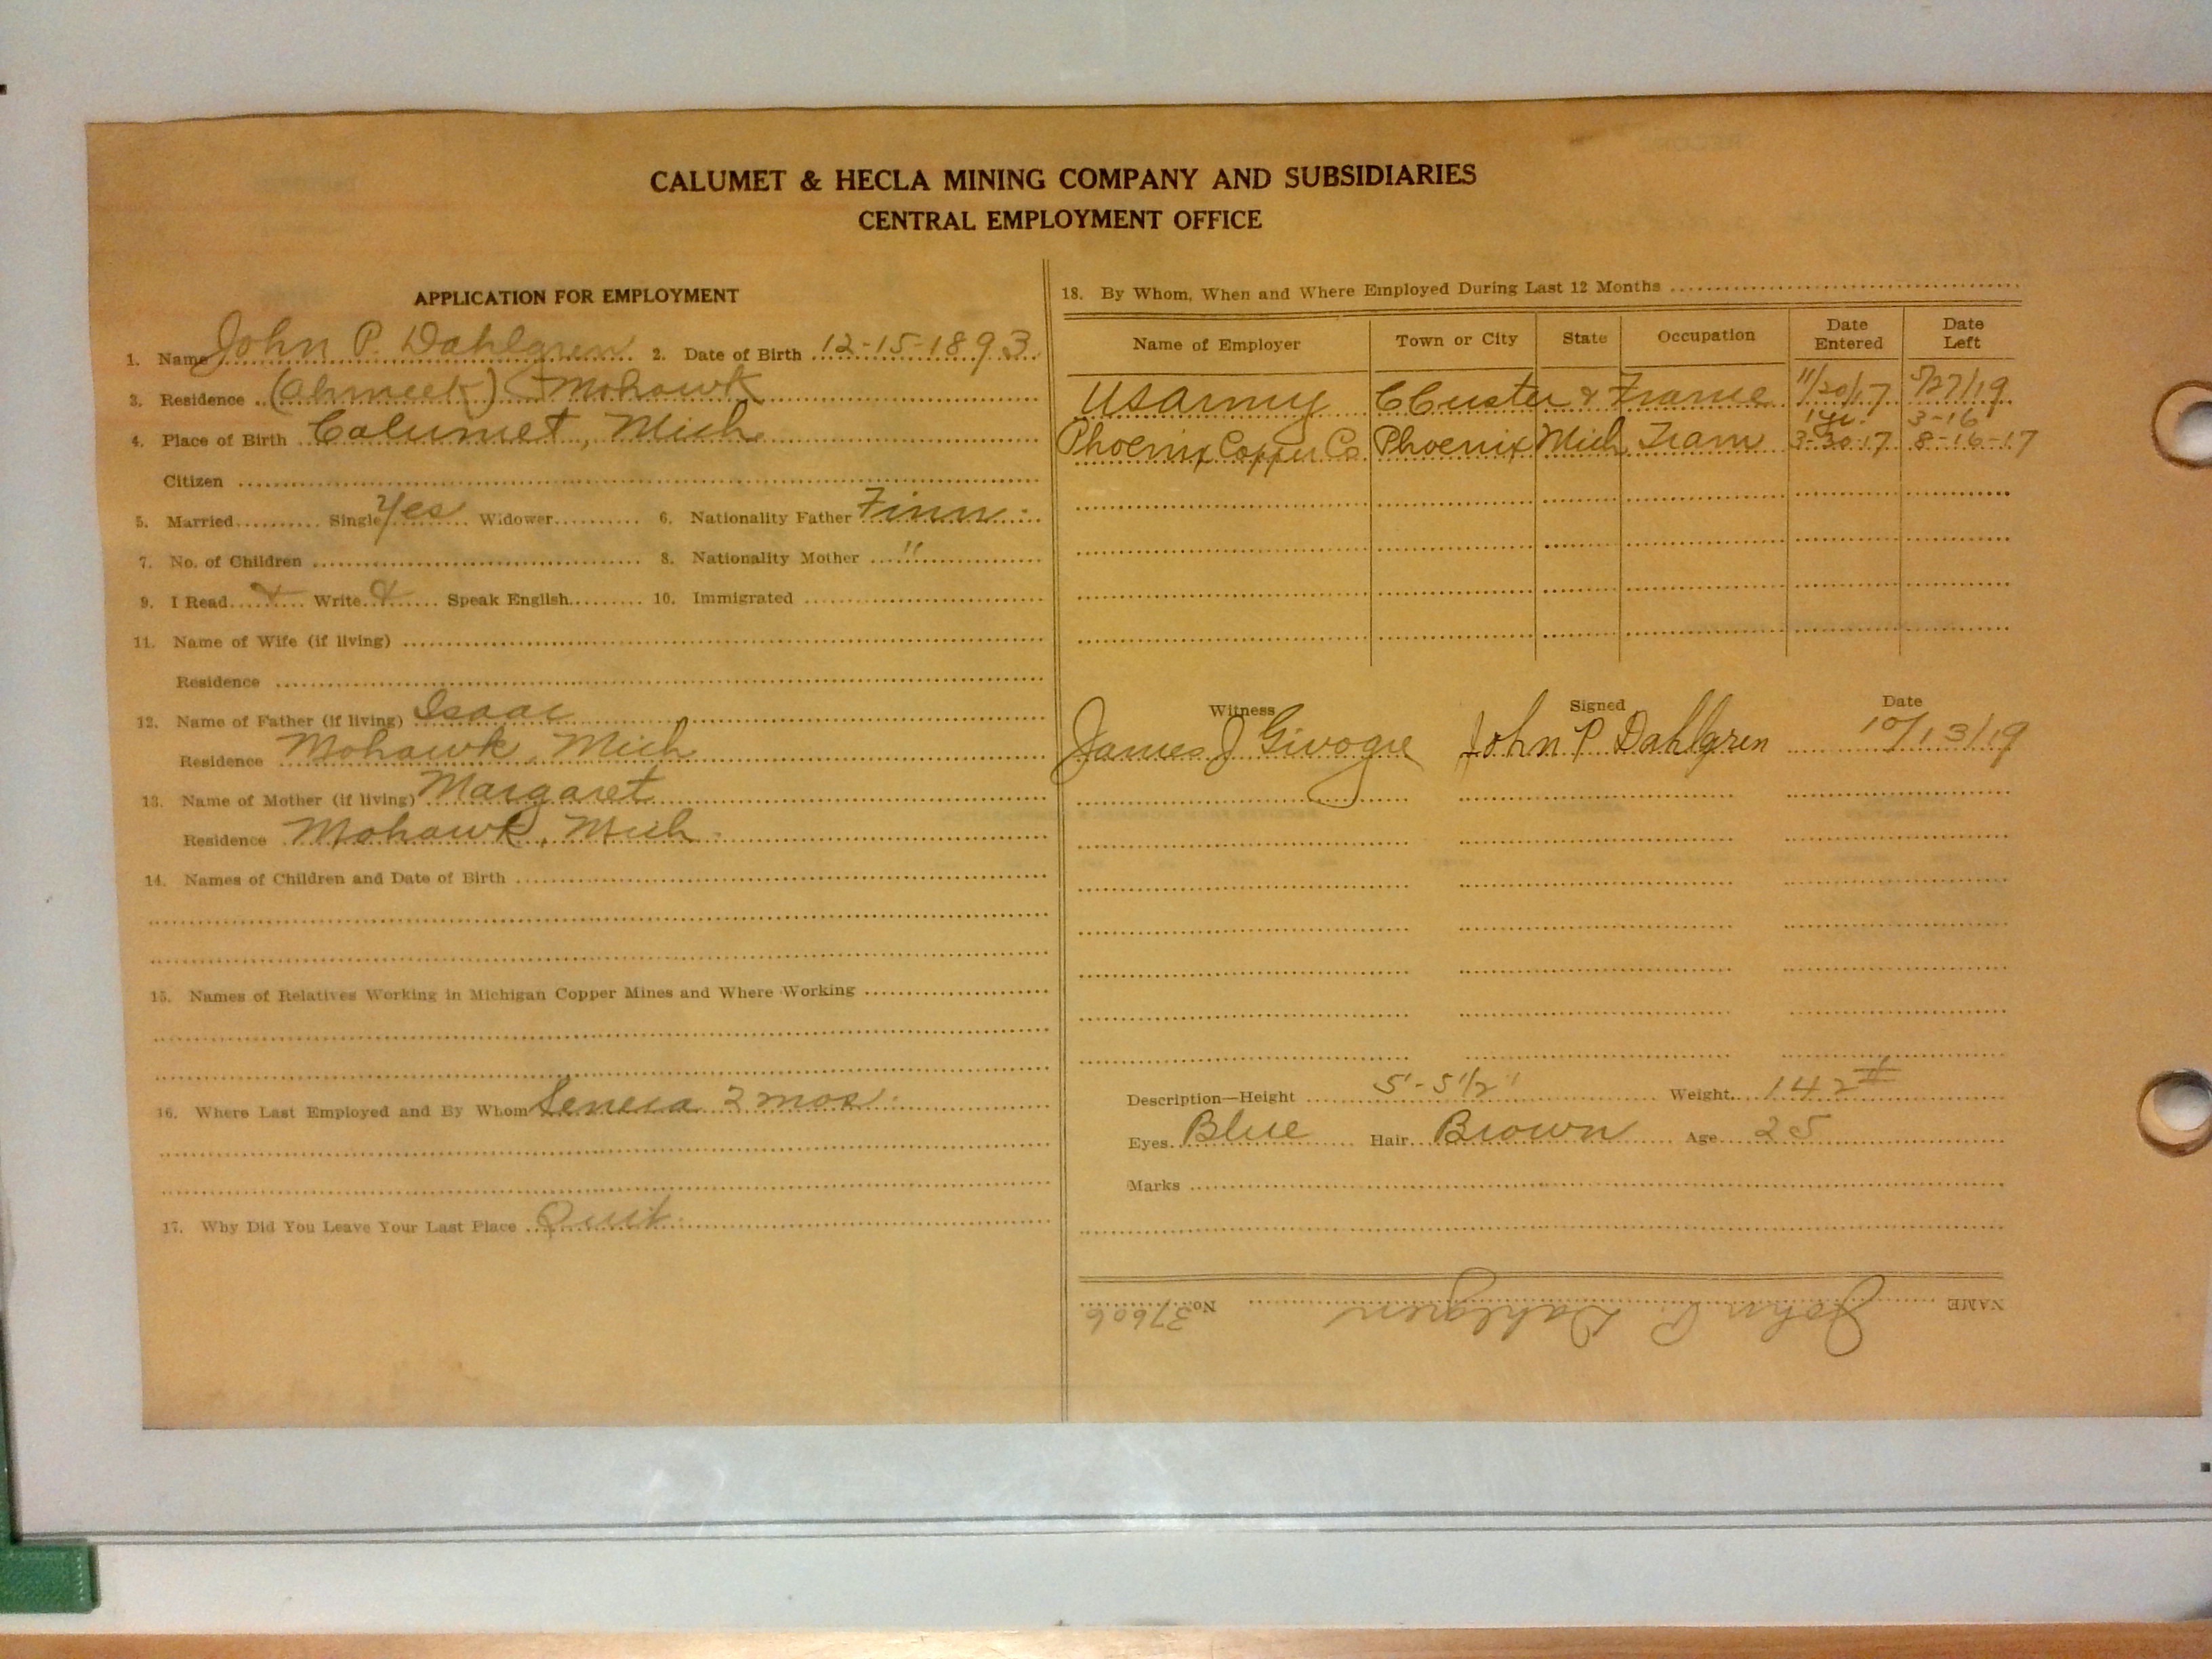 CALUMET & HECLA MINING COMPANY AND SUBSIDIARIES
CENTRAL EMPLOYMENT OFFICE
APPLICATION FOR EMPLOYMENT
1. Name John P. Dahlgren 2. Date of Birth 12-15-1893
3. Residence (Ahmeek) Mohawk
4. Place of Birth Calumet, Mich
Citizen
5. Married Single Yes Widower 6. Nationality Father Finn
7. No. of Children 8. Nationality Mother "
9. I Read Write Speak English 10. Immigrated
11. Name of Wife (if living)
Residence
12. Name of Father (if living) Isaac
Residence Mohawk, Mich
13. Name of Mother (if living) Margaret
Residence Mohawk, Mich
14. Names of Children and Date of Birth
15. Names of Relatives Working in Michigan Copper Mines and Where Working
16. Where Last Employed and By Whom Seneca 2 mos.
17. Why Did You Leave Your Last Place Quit
18. By Whom, When and Where Employed During Last 12 Months
Name of Employer Town or City State Occupation Date Entered Date Left
US Army C Custer & France 11/20/17 5/27/19
1 yr. 3-16
Phoenix Copper Co Phoenix Mich Tram 3-30-17 8-16-17
Witness Signed Date
James J John P Dahlgren 10/13/19
Description—Height 5'-5 1/2" Weight 142 #
Eyes Blue Hair Brown Age 25
Marks
NAME John P. Dahlgren No. 37606